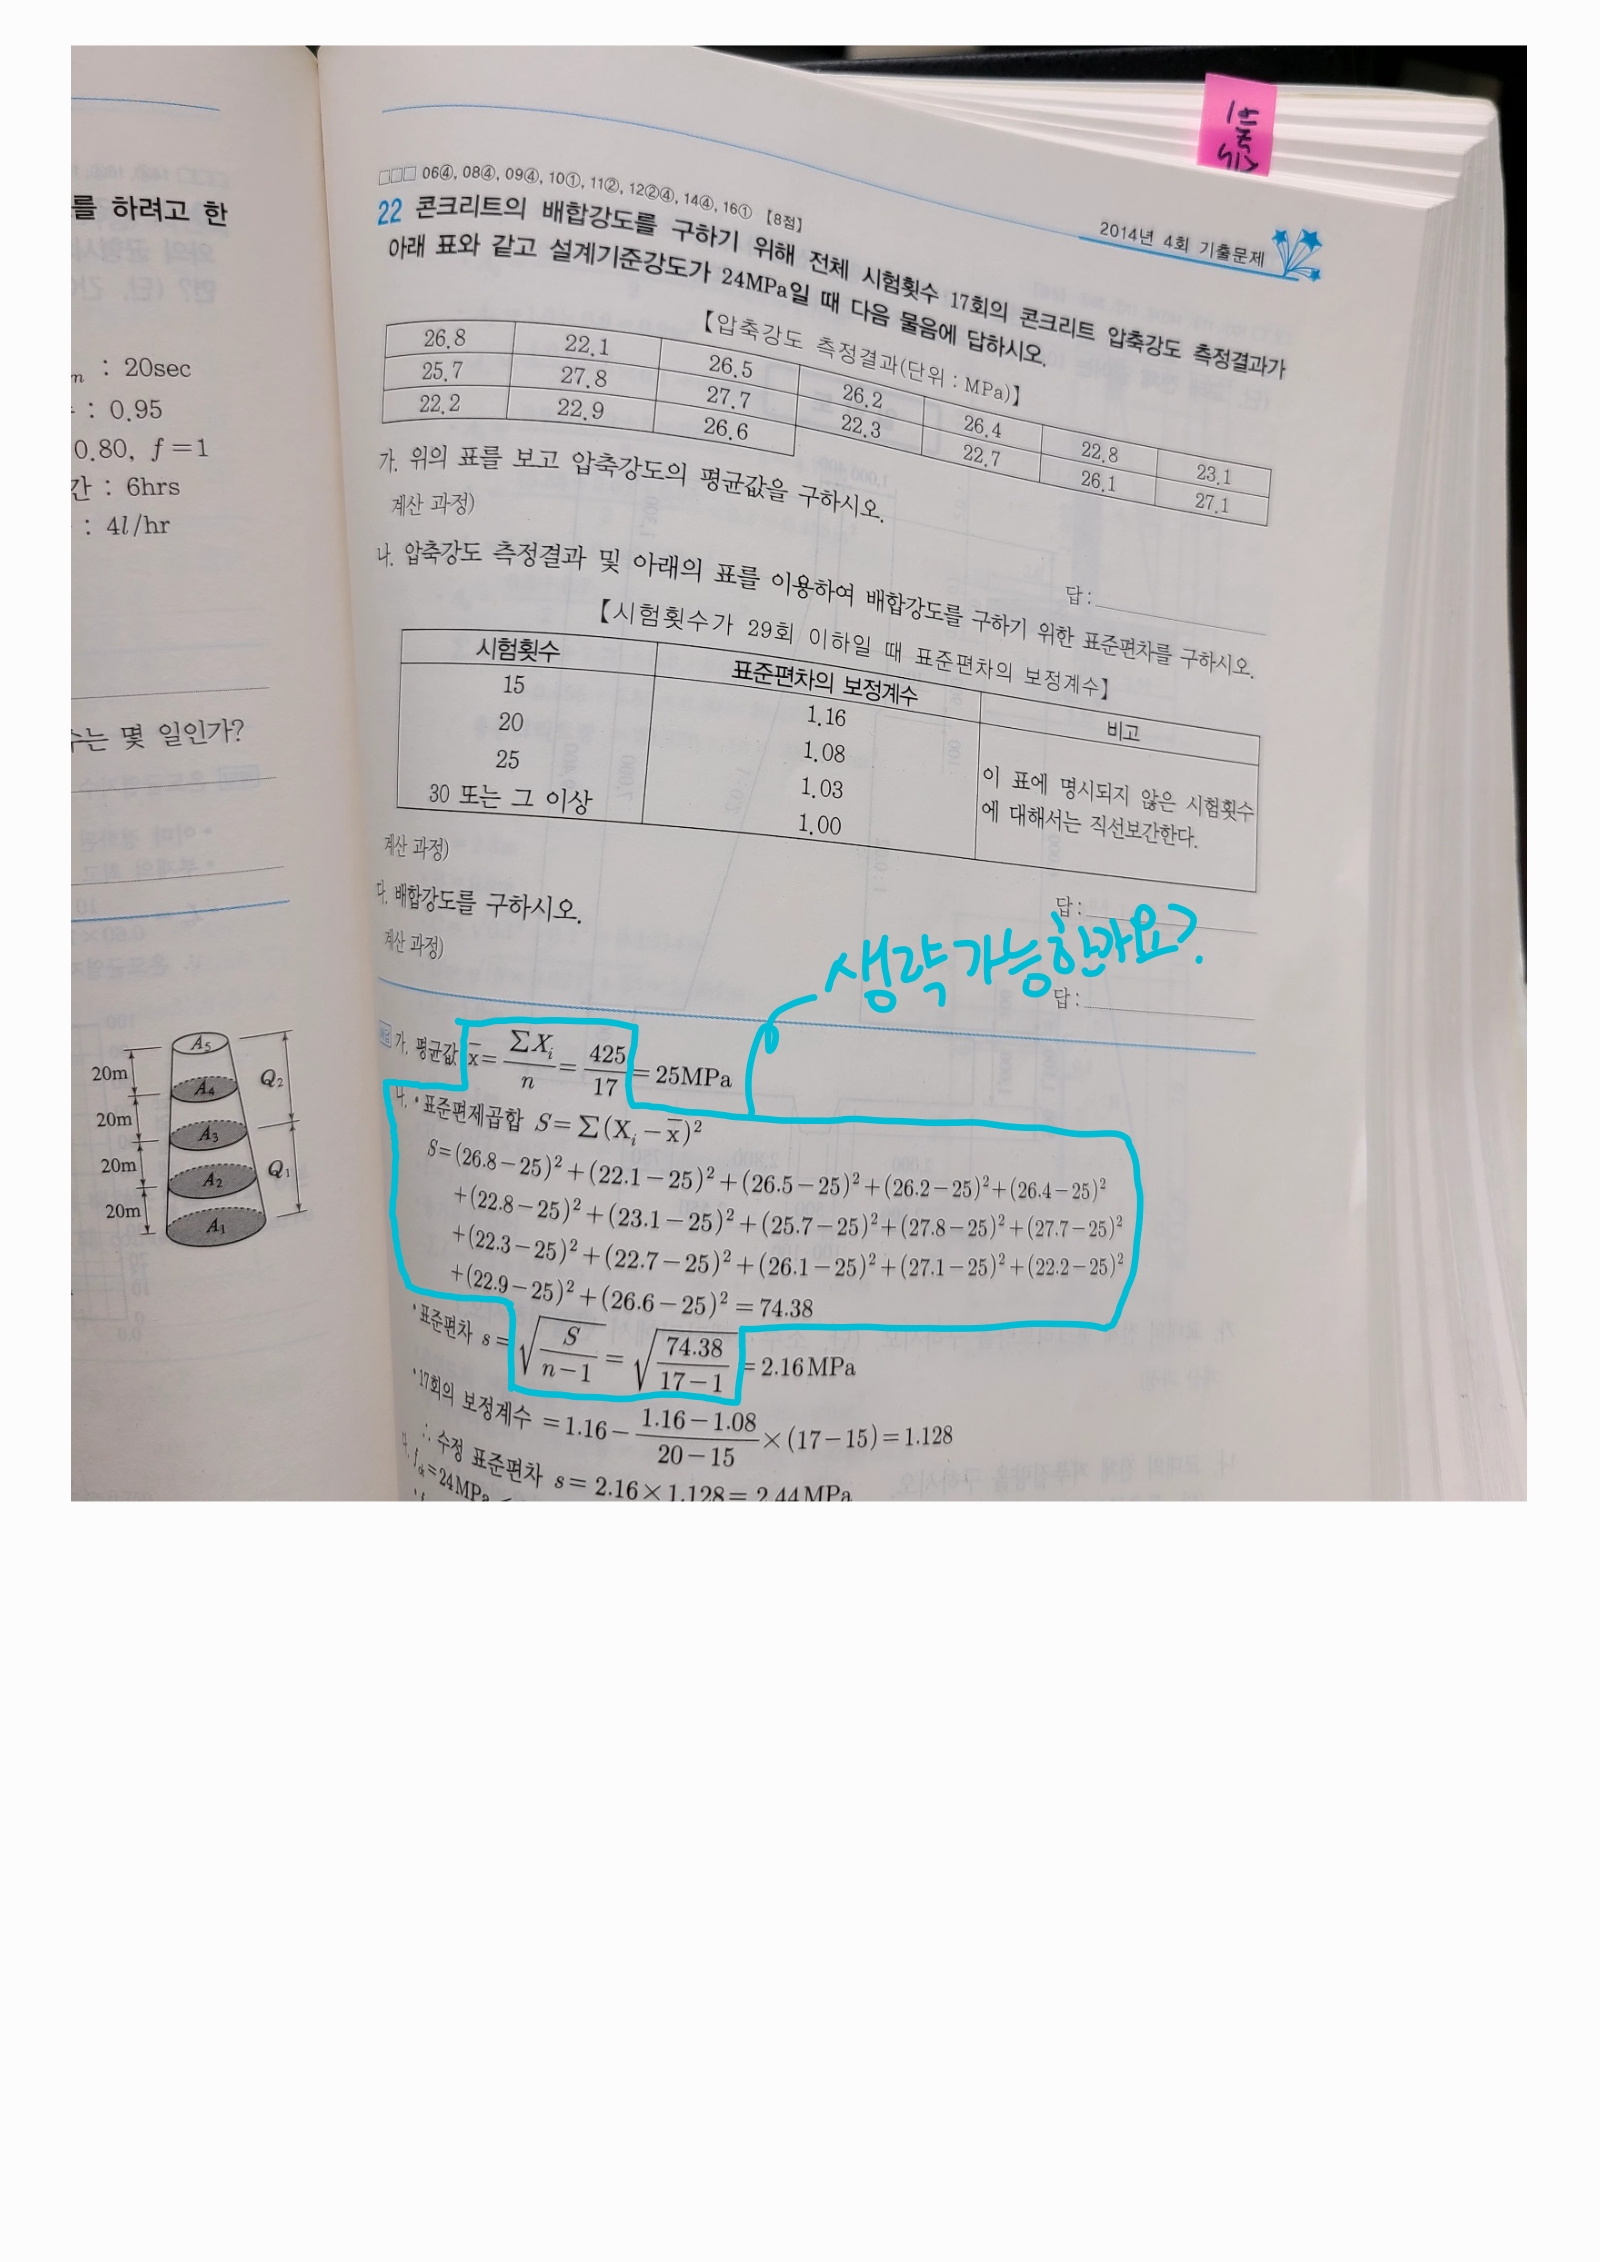 를 하려고 한
m : 20sec
: 0.95
0.80, f=1
간 : 6hrs
: 4l/hr
수는 몇 일인가?
A5
A4
A3
A2
A1
20m
20m
20m
20m
Q2
Q1
2014년 4회 기출문제
□□□ 06④, 08④, 09④, 10①, 11②, 12②④, 14④, 16① 【8점】
22 콘크리트의 배합강도를 구하기 위해 전체 시험횟수 17회의 콘크리트 압축강도 측정결과가
아래 표와 같고 설계기준강도가 24MPa일 때 다음 물음에 답하시오.
【압축강도 측정결과(단위 : MPa)】
26.8 22.1 26.5 26.2 26.4 22.8 23.1
25.7 27.8 27.7 22.3 22.7 26.1 27.1
22.2 22.9 26.6
가. 위의 표를 보고 압축강도의 평균값을 구하시오.
계산 과정)
답:
나. 압축강도 측정결과 및 아래의 표를 이용하여 배합강도를 구하기 위한 표준편차를 구하시오.
【시험횟수가 29회 이하일 때 표준편차의 보정계수】
시험횟수 표준편차의 보정계수 비고
15 1.16
20 1.08
25 1.03
30 또는 그 이상 1.00
이 표에 명시되지 않은 시험횟수
에 대해서는 직선보간한다.
계산 과정)
답:
다. 배합강도를 구하시오.
계산 과정)
답:
생략가능한가요?
가. 평균값 x̄ = ΣXi/n = 425/17 = 25MPa
나. • 표준편제곱합 S=Σ(Xi−x̄)²
S=(26.8−25)²+(22.1−25)²+(26.5−25)²+(26.2−25)²+(26.4−25)²
+(22.8−25)²+(23.1−25)²+(25.7−25)²+(27.8−25)²+(27.7−25)²
+(22.3−25)²+(22.7−25)²+(26.1−25)²+(27.1−25)²+(22.2−25)²
+(22.9−25)²+(26.6−25)²=74.38
• 표준편차 s=√(S/(n−1))=√(74.38/(17−1))=2.16MPa
• 17회의 보정계수 =1.16−(1.16−1.08)/(20−15)×(17−15)=1.128
∴ 수정 표준편차 s=2.16×1.128=2.44MPa
fck=24MPa